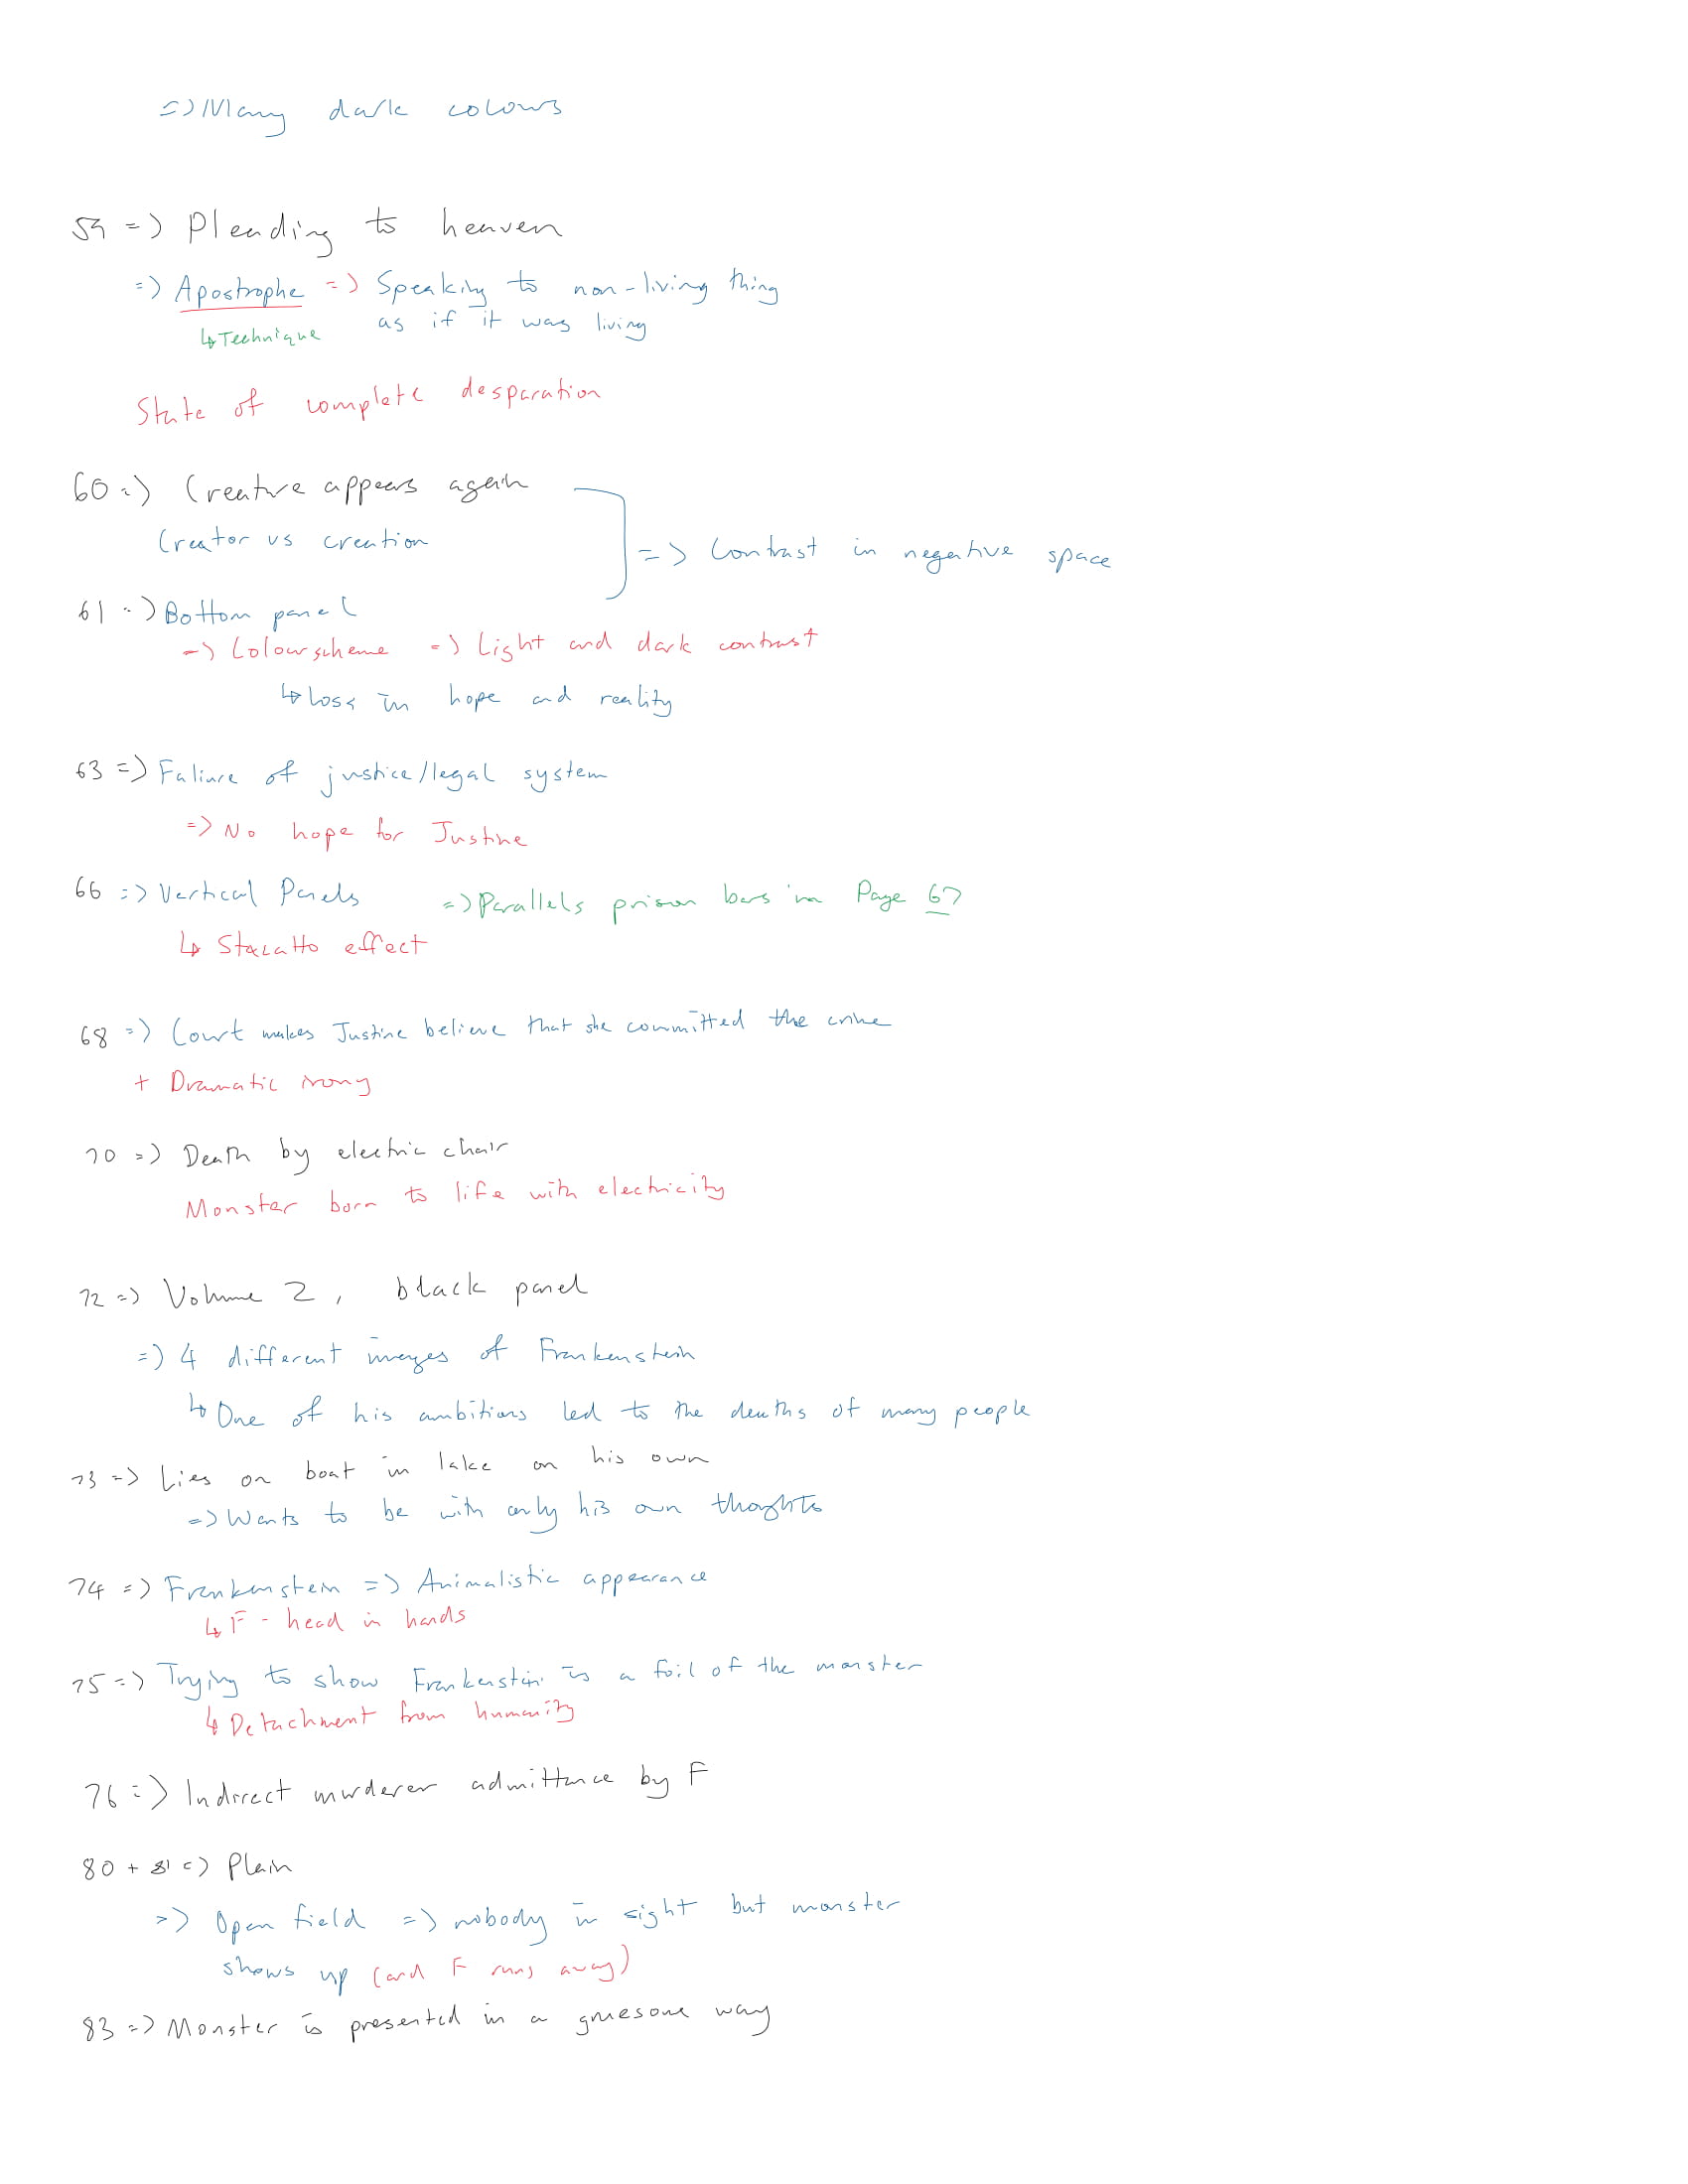 => Many dark colours
59 => Pleading to heaven
=> Apostrophe => Speaking to non-living thing
as if it was living
↳ Technique
State of complete desparation
60 => Creature appears again
Creator vs creation
=> Contrast in negative space
61 => Bottom panel
=> Colourscheme => Light and dark contrast
↳ Loss in hope and reality
63 => Faliure of justice/legal system
=> No hope for Justine
66 => Vertical Panels => Parallels prison bars in Page 67
↳ Stacatto effect
68 => Court makes Justine believe that she committed the crime
+ Dramatic irony
70 => Death by electric chair
Monster born to life with electricity
72 => Volume 2, black panel
=> 4 different images of Frankenstein
↳ One of his ambitions led to the deaths of many people
73 => Lies on boat in lake on his own
=> Wants to be with only his own thoughts
74 => Frankenstein => Animalistic appearance
↳ F - head in hands
75 => Trying to show Frankenstein is a foil of the monster
↳ Detachment from humanity
76 => Indirect murderer admittance by F
80 + 81 => Plain
=> Open field => nobody in sight but monster
shows up (and F runs away)
83 => Monster is presented in a gruesome way